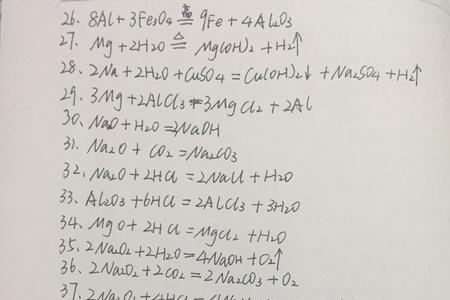 26. 8Al+3Fe3O4 高温 9Fe + 4Al2O3
27. Mg+2H2O △= Mg(OH)2 + H2↑
28. 2Na+2H2O+CuSO4 = Cu(OH)2↓ + Na2SO4 + H2↑
29. 3Mg+2AlCl3 = 3MgCl2 + 2Al
30. Na2O + H2O = 2NaOH
31. Na2O + CO2 = Na2CO3
32. Na2O + 2HCl = 2NaCl + H2O
33. Al2O3 + 6HCl = 2AlCl3 + 3H2O
34. MgO + 2HCl = MgCl2 + H2O
35. 2Na2O2 + 2H2O = 4NaOH + O2↑
36. 2Na2O2 + 2CO2 = 2Na2CO3 + O2
37. 2Na2O2 + 4HCl =